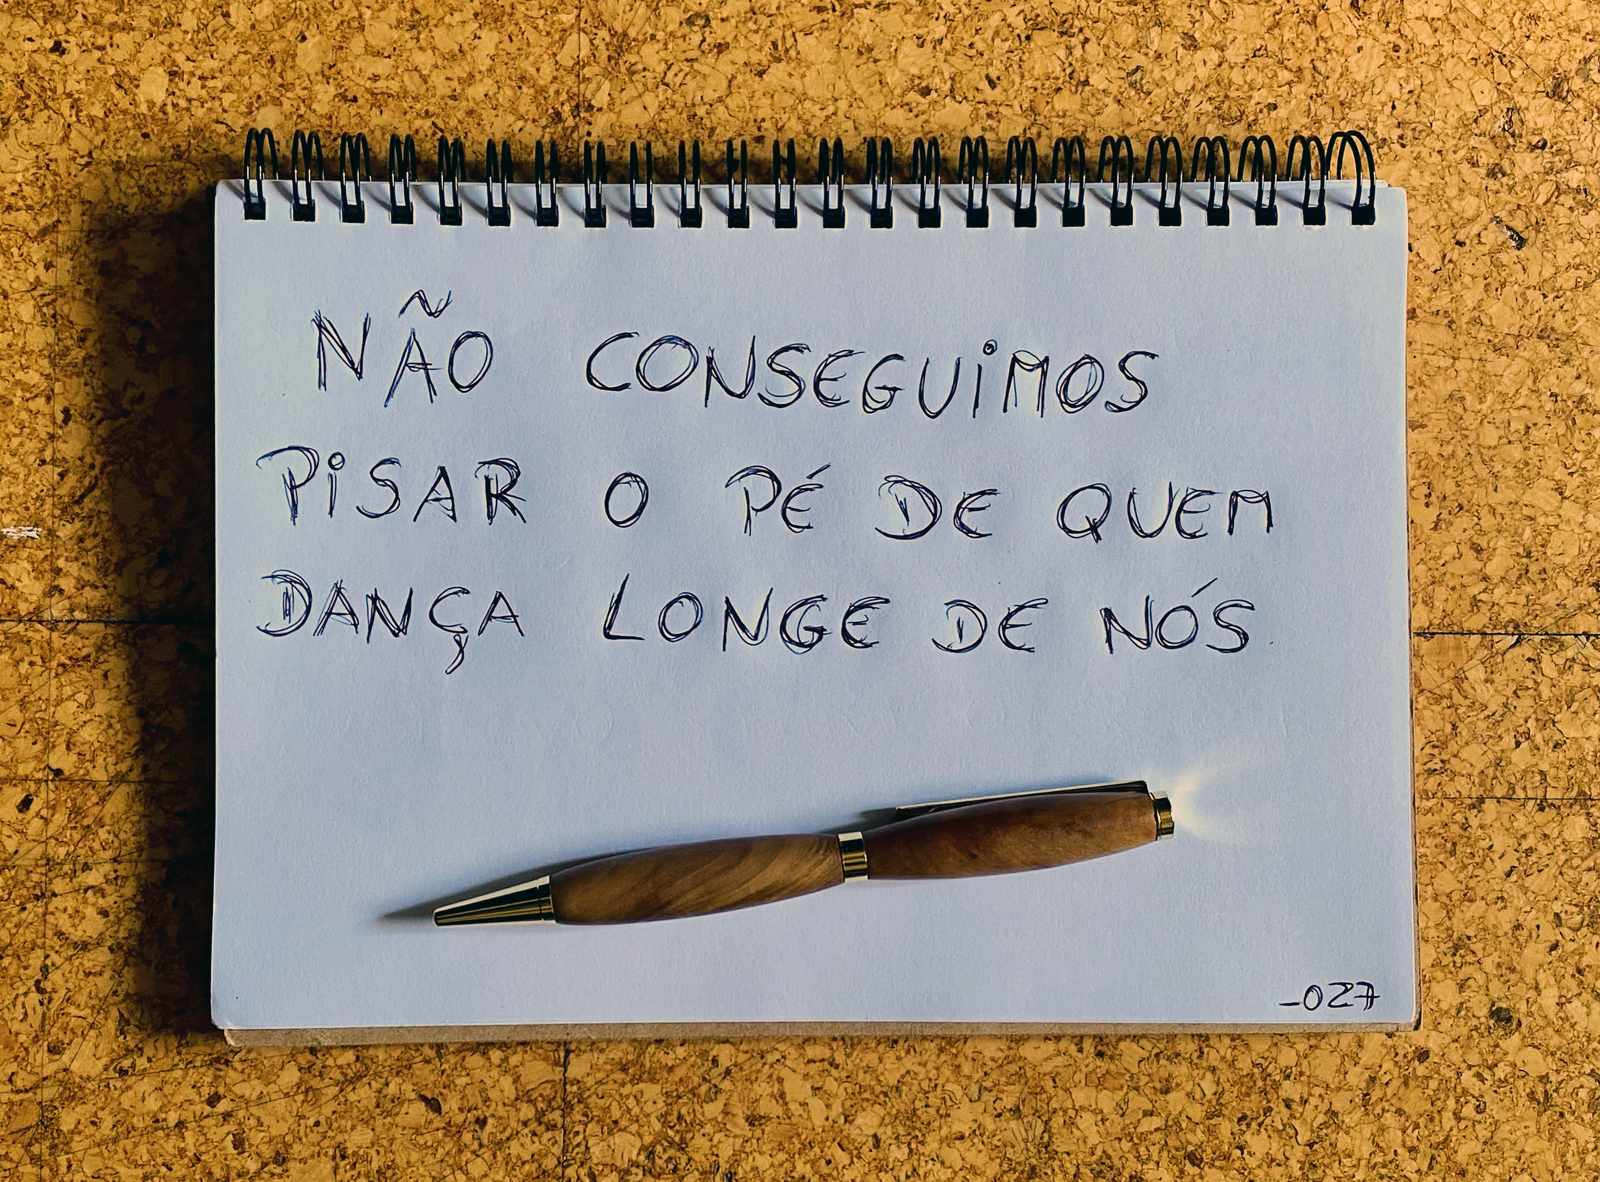 NÃO CONSEGUIMOS
PISAR O PÉ DE QUEM
DANÇA LONGE DE NÓS.
-027